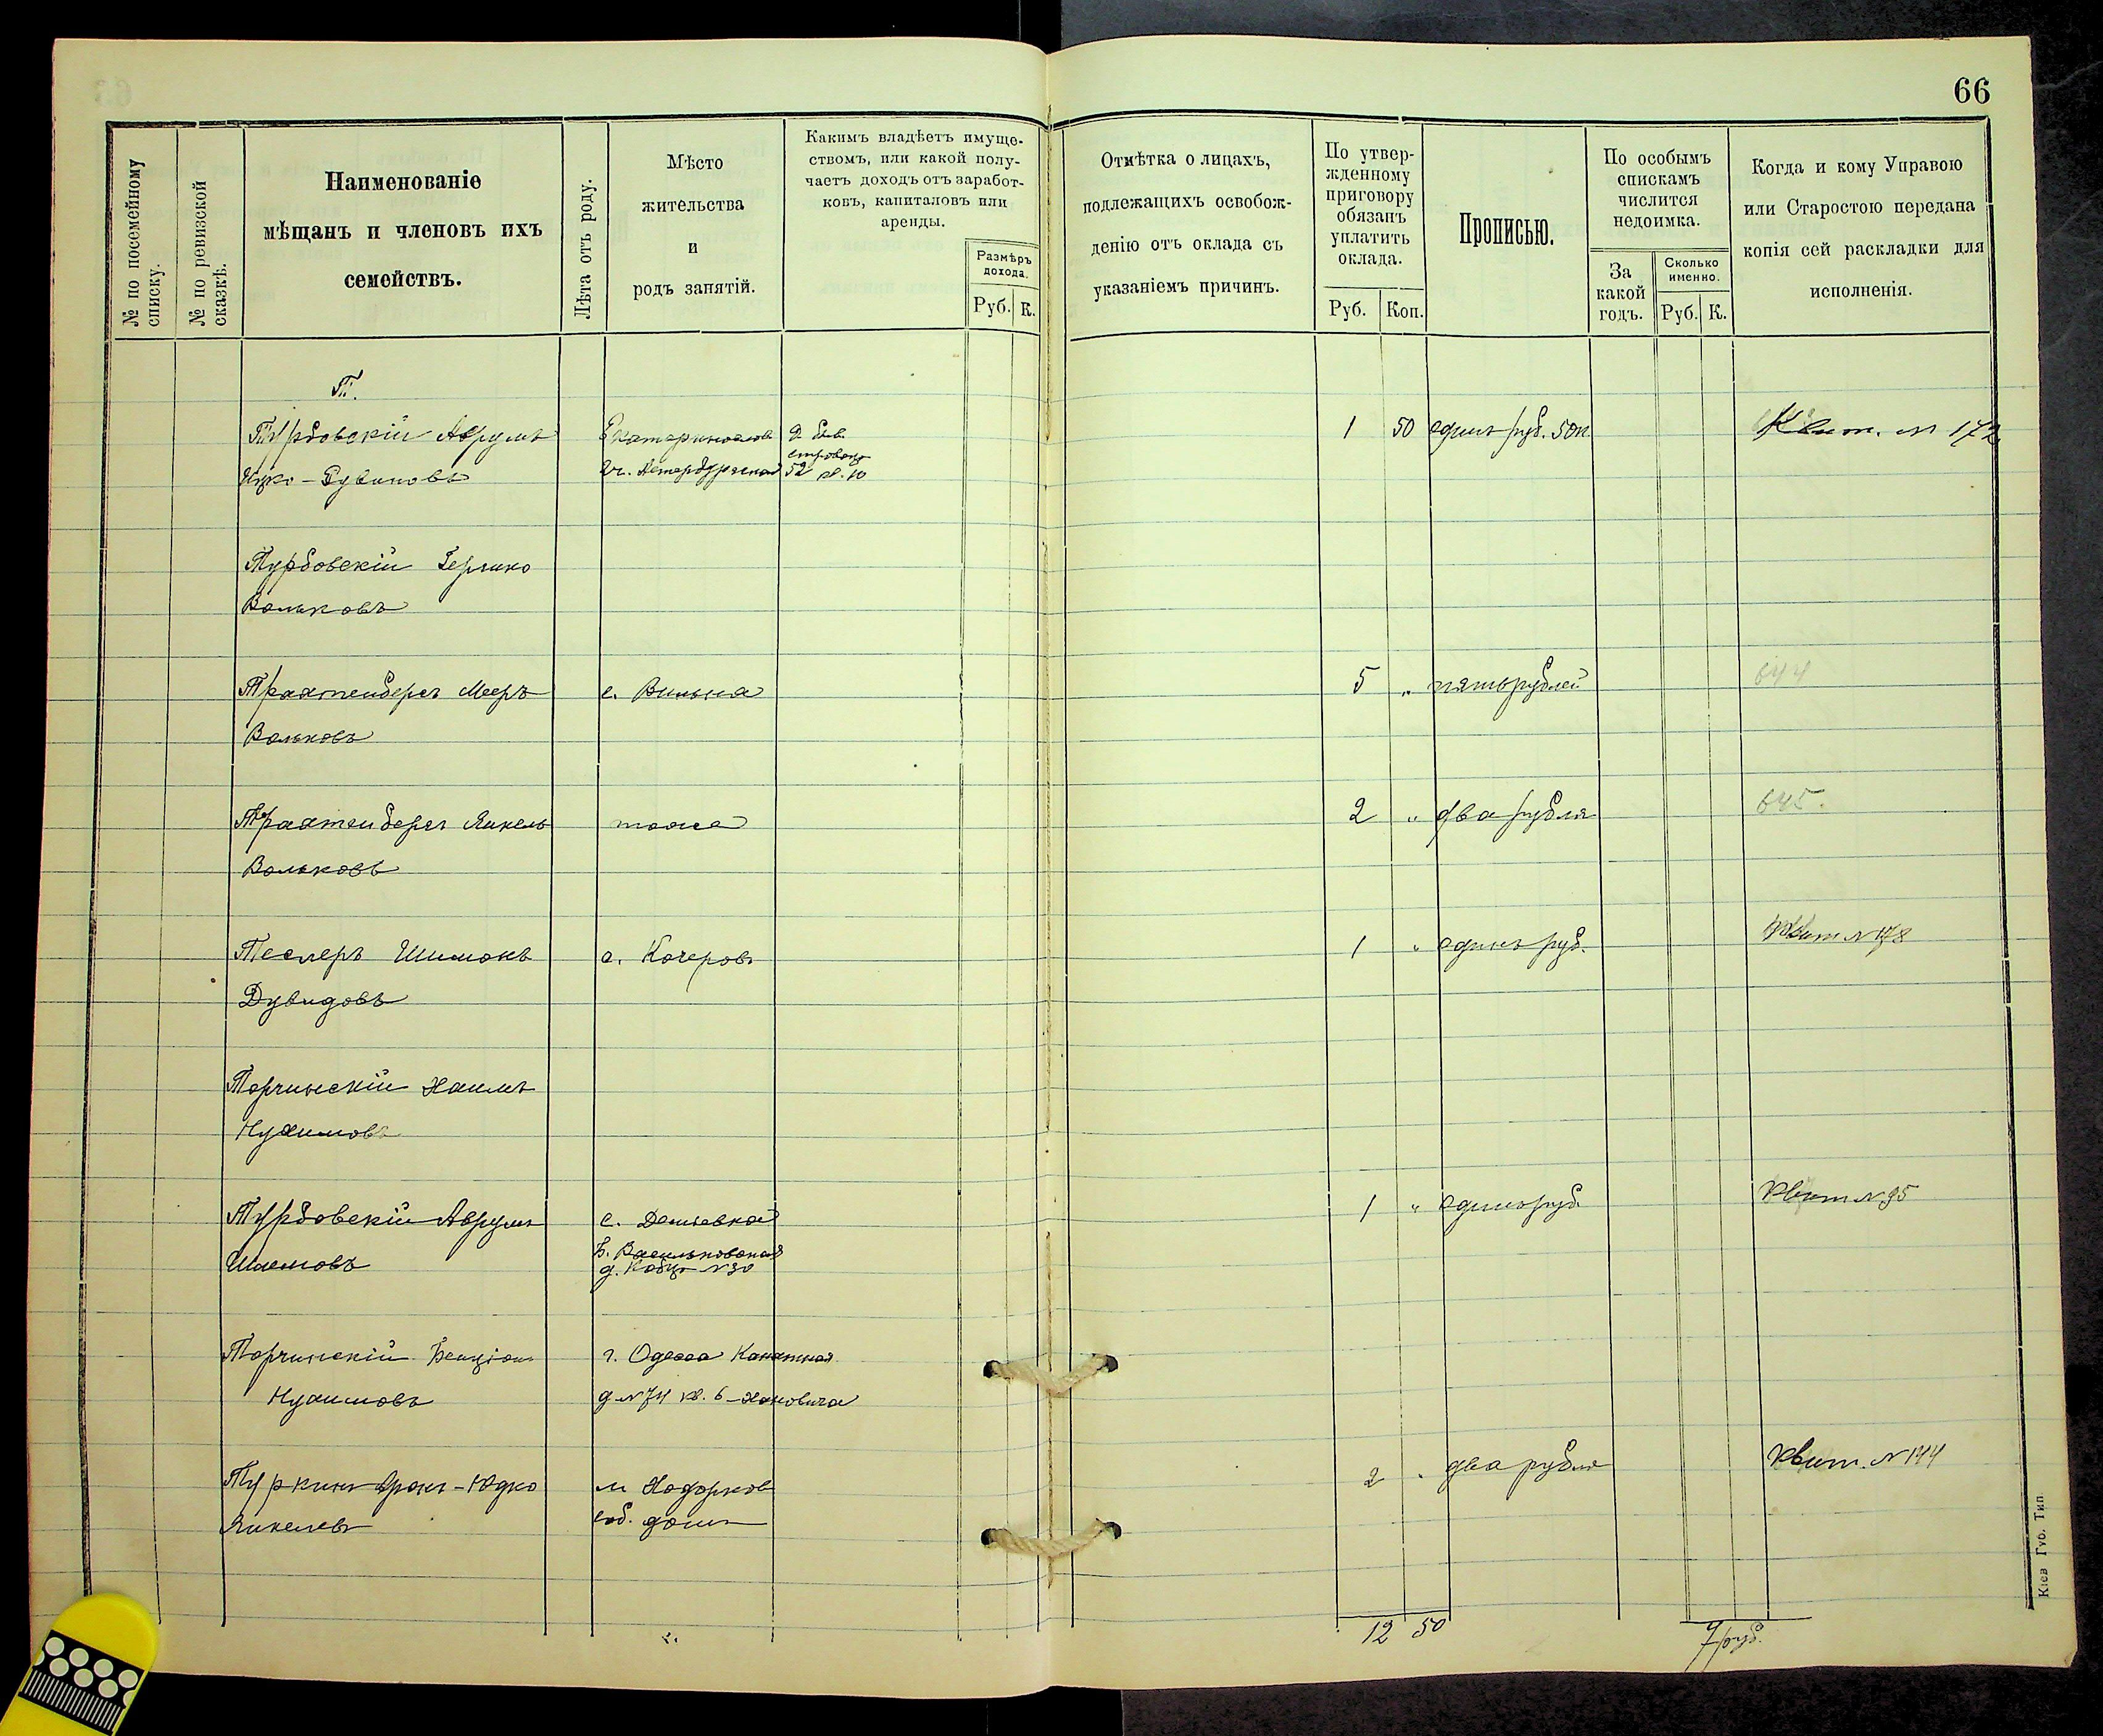 66
№ по посемейному списку.
№ по ревизской сказкѣ.
Наименованіе
мѣщанъ и членовъ ихъ
семействъ.
Лѣта отъ роду.
Мѣсто
жительства
и
родъ занятій.
Какимъ владѣетъ имуще-
ствомъ, или какой полу-
чаетъ доходъ отъ заработ-
ковъ, капиталовъ или
аренды.
Размѣръ
дохода.
Руб. К.
Отмѣтка о лицахъ,
подлежащихъ освобож-
денію отъ оклада съ
указаніемъ причинъ.
По утвер-
жденному
приговору
обязанъ
уплатить
оклада.
Руб. Коп.
Прописью.
По особымъ
спискамъ
числится
недоимка.
За
какой
годъ.
Сколько
именно.
Руб. К.
Когда и кому Управою
или Старостою передана
копія сей раскладки для
исполненія.
Т.
Турбовскій Аврумъ 1 50 одинъ руб. 50 к Квит. № 172
Ицко-Рувиновъ 52 кв. 10
Турбовскій Гершко
Вольковъ
Трахтенберг Мееръ г. Вильна 5 " пять рублей 644
Вольковъ
Трахтенберг Янкель тоже 2 " два рубля 645.
Вольковъ
Теслеръ Шимонъ с. Кочеровъ 1 " одинъ руб. Квит № 178
Дувидовъ
Торчинскій Хаимъ
Нухимовъ
Турбовскій Аврумъ с. Деміевка 1 " одинъ руб. Квит № 95
Шаемовъ Б. Васильковская
д. № 30
Торчинскій Бенціонъ г. Одесса Канатная
Нухимовъ д № 74 кв. 6
Туркинъ Юдко м Ходорковъ 2 " два рубля Квит. № 144
Янкелевъ соб. домъ
12 50
7 руб.
Кіев Губ. Тип.